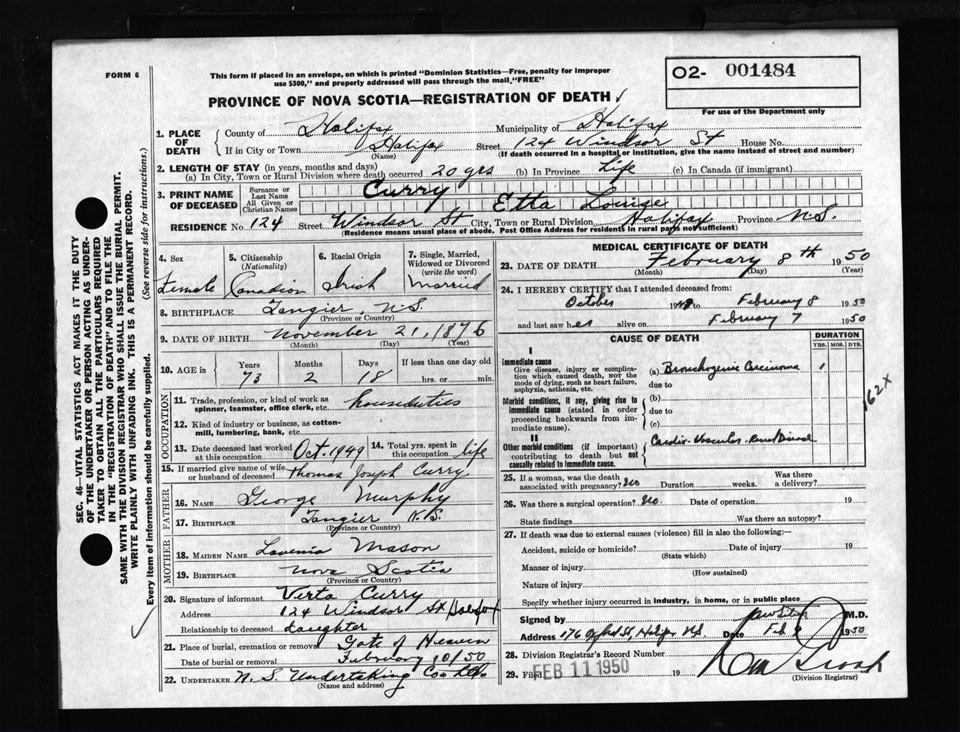 FORM 6
This form if placed in an envelope, on which is printed "Dominion Statistics—Free, penalty for improper
use $300," and properly addressed will pass through the mail, "FREE"
O2- 001484
For use of the Department only
PROVINCE OF NOVA SCOTIA—REGISTRATION OF DEATH
1. PLACE OF DEATH County of Halifax Municipality of Halifax
If in City or Town Halifax (Name) Street 124 Windsor St House No.
(If death occurred in a hospital or institution, give the name instead of street and number)
2. LENGTH OF STAY (in years, months and days)
(a) In City, Town or Rural Division where death occurred 20 yrs (b) In Province Life (c) In Canada (if immigrant)
3. PRINT NAME OF DECEASED Surname or Last Name Curry
All Given or Christian Names Etta Louise
RESIDENCE No. 124 Street Windsor St City, Town or Rural Division Halifax Province N.S.
(Residence means usual place of abode. Post Office Address for residents in rural parts not sufficient)
4. Sex Female
5. Citizenship (Nationality) Canadian
6. Racial Origin Irish
7. Single, Married, Widowed or Divorced (write the word) Married
8. BIRTHPLACE Tangier, N.S.
(Province or Country)
9. DATE OF BIRTH November 21, 1876
(Month) (Day) (Year)
10. AGE in Years 73 Months 2 Days 18 If less than one day old hrs. or min.
OCCUPATION
11. Trade, profession, or kind of work as spinner, teamster, office clerk, etc. houseduties
12. Kind of industry or business, as cotton-mill, lumbering, bank, etc.
13. Date deceased last worked at this occupation Oct. 1949
14. Total yrs. spent in this occupation life
15. If married give name of wife or husband of deceased Thomas Joseph Curry
FATHER
16. NAME George Murphy
17. BIRTHPLACE Tangier N.S.
(Province or Country)
MOTHER
18. MAIDEN NAME Lavenia Mason
19. BIRTHPLACE Nova Scotia
(Province or Country)
20. Signature of informant Verta Curry
Address 124 Windsor St Halifax
Relationship to deceased daughter
21. Place of burial, cremation or removal Gate of Heaven
Date of burial or removal February 10/50
22. UNDERTAKER N. S. Undertaking Co Ltd
(Name and address)
MEDICAL CERTIFICATE OF DEATH
23. DATE OF DEATH February 8th 1950
(Month) (Day) (Year)
24. I HEREBY CERTIFY that I attended deceased from:
October 19 to February 8 1950
and last saw her alive on February 7 1950
CAUSE OF DEATH
DURATION
YRS. MOS. DYS.
I
Immediate cause
Give disease, injury or complication which caused death, not the mode of dying, such as heart failure, asphyxia, asthenia, etc.
(a) Bronchogenic Carcinoma 1
due to
Morbid conditions, if any, giving rise to immediate cause (stated in order proceeding backwards from immediate cause).
(b)
due to
(c)
II
Other morbid conditions (if important) contributing to death but not causally related to immediate cause.
Cardio-Vascular-Renal Disease
162X
25. If a woman, was the death associated with pregnancy? No Duration weeks. Was there a delivery?
26. Was there a surgical operation? No Date of operation 19
State findings Was there an autopsy?
27. If death was due to external causes (violence) fill in also the following:
Accident, suicide or homicide? Date of injury 19
(State which)
Manner of injury
(How sustained)
Nature of injury
Specify whether injury occurred in industry, in home, or in public place
Signed by M.D.
Address 176 Oxford St, Halifax N.S. Date Feb 1950
28. Division Registrar's Record Number
29. Filed FEB 11 1950 19
(Division Registrar)
SEC. 46—VITAL STATISTICS ACT MAKES IT THE DUTY
OF THE UNDERTAKER OR PERSON ACTING AS UNDER-
TAKER TO OBTAIN ALL THE PARTICULARS REQUIRED
IN THE "REGISTRATION OF DEATH" AND TO FILE THE
SAME WITH THE DIVISION REGISTRAR WHO SHALL ISSUE THE BURIAL PERMIT.
WRITE PLAINLY WITH UNFADING INK. THIS IS A PERMANENT RECORD.
Every item of information should be carefully supplied. (See reverse side for instructions.)